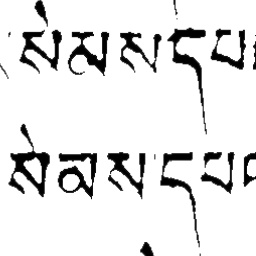 སེམས་དཔ
སེམས་དཔ